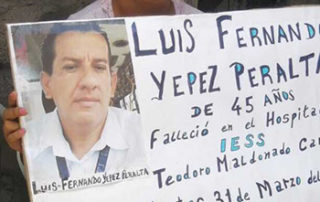 LUIS FERNANDO
YEPEZ PERALTA
DE 45 AÑOS
Falleció en el Hospital
IESS
Teodoro Maldonado Car
31 de Marzo del
LUIS-FERNANDO YEPEZ PERALTA